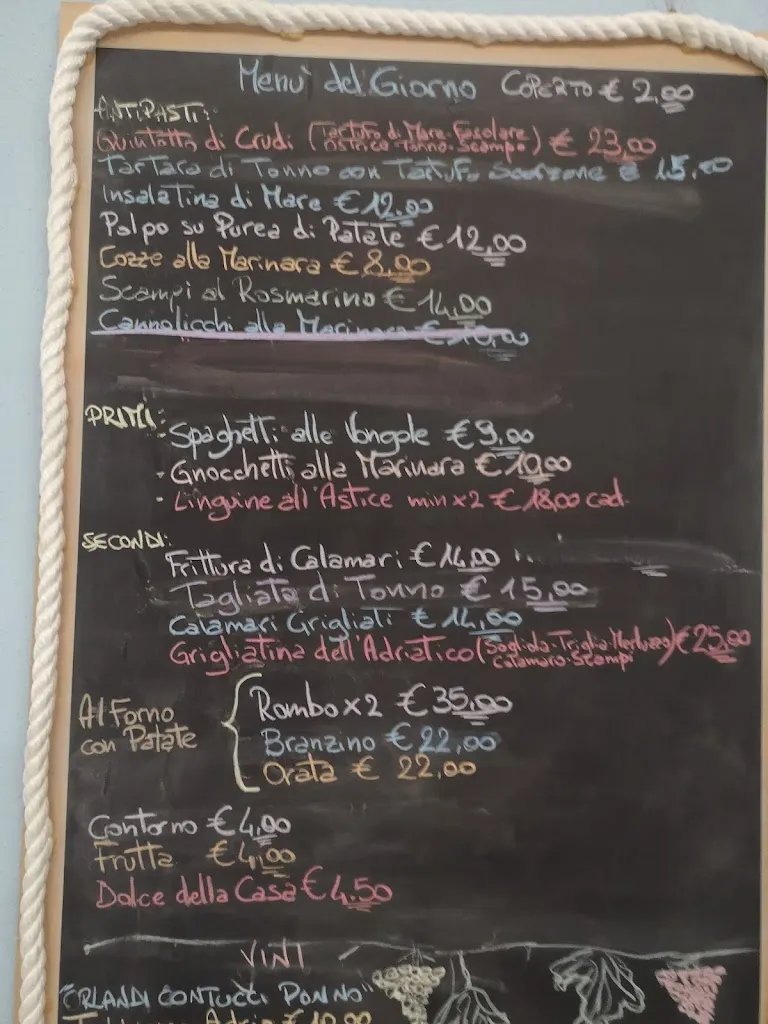 Menu' del Giorno COPERTO € 2,00
ANTIPASTI:
Quintetto di Crudi (Tartufo di Mare-Fasolare
Ostrica-Tonno-Scampo) € 23,00
Tartara di Tonno con Tartufo Scorzone € 15,00
Insalatina di Mare € 12,00
Polpo su Purea di Patate € 12,00
Cozze alla Marinara € 8,00
Scampi al Rosmarino € 14,00
Cannolicchi alla Marinara € 10,00
PRIMI:
- Spaghetti alle Vongole € 9,00
- Gnocchetti alla Marinara € 10,00
- Linguine all'Astice min x2 € 18,00 cad.
SECONDI:
Frittura di Calamari € 14,00
Tagliata di Tonno € 15,00
Calamari Grigliati € 14,00
Grigliatina dell'Adriatico (Sogliola-Triglia-Merluzzo) € 25,00
Calamaro-Scampi
Al Forno
con Patate
Rombo x2 € 35,00
Branzino € 22,00
Orata € 22,00
Contorno € 4,00
Frutta € 4,00
Dolce della Casa € 4.50
VINI
"ORLANDI CONTUCCI PONNO"